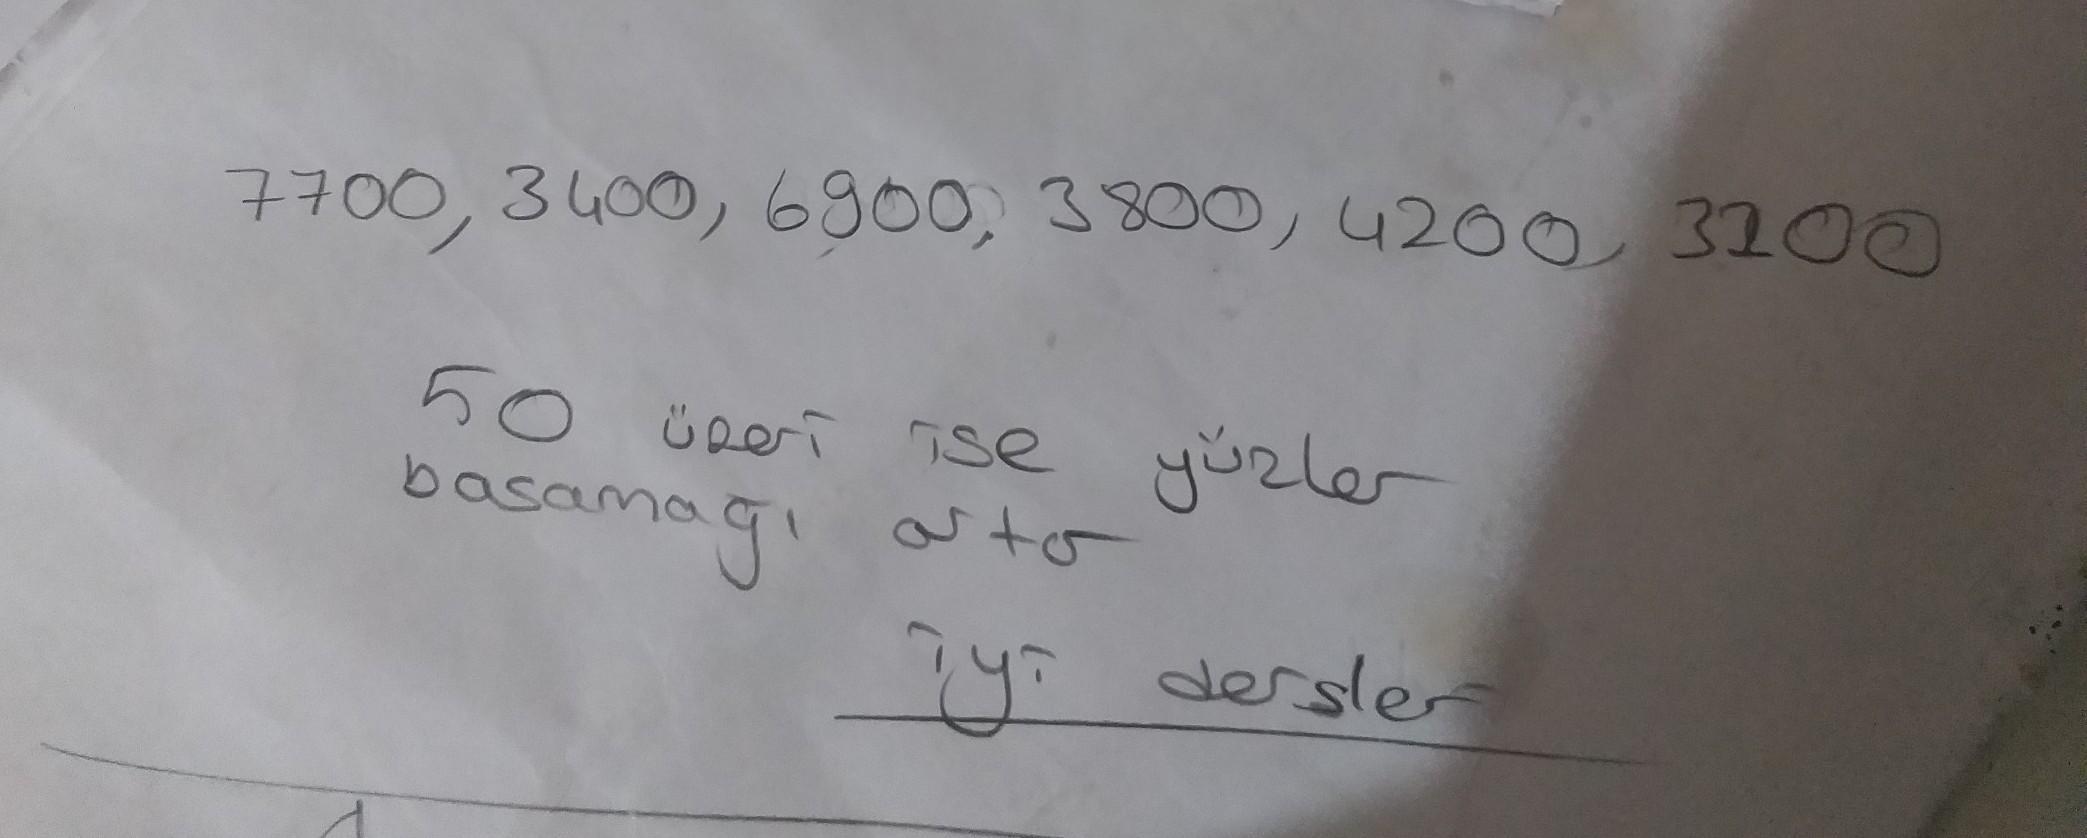 7700, 3400, 6900, 3800, 4200, 3200
50 üzeri ise yüzler
basamağı artar
iyi dersler